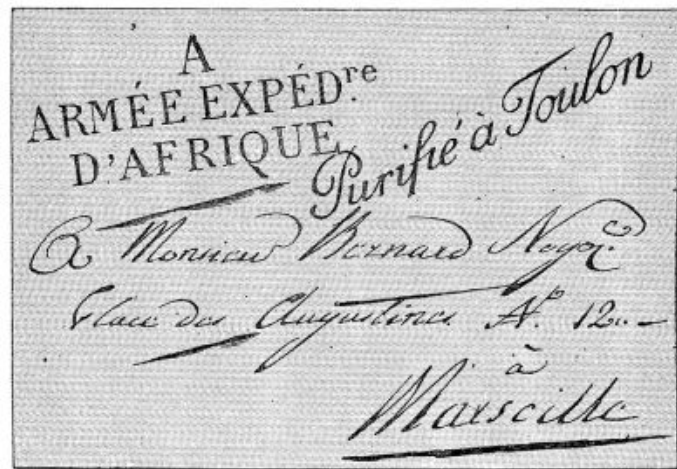 A
ARMÉE EXPÉD.re
D'AFRIQUE
Purifié à Toulon
A Monsieur Bernard Negon.t
Place des Augustines N.o 12..
à
Marseille